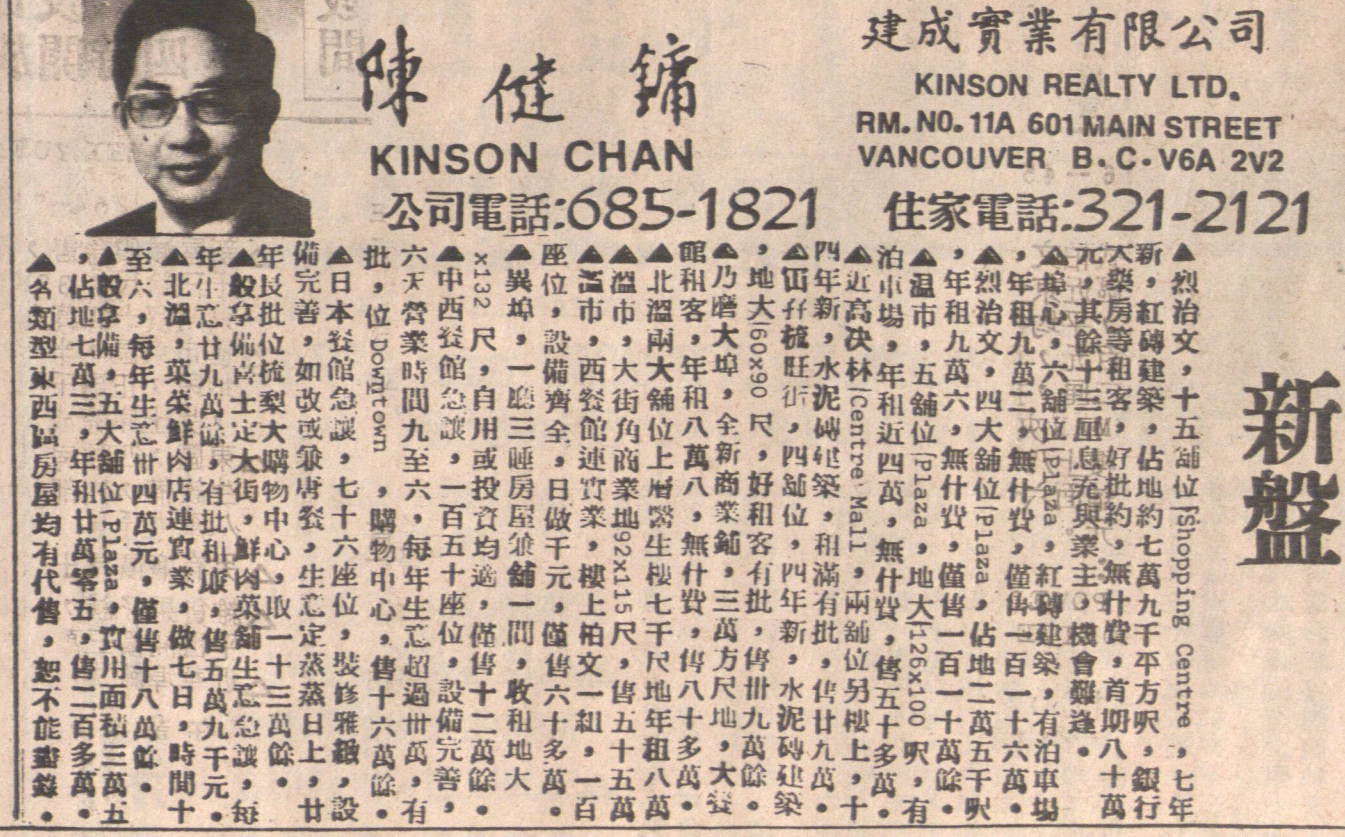 陳健鏞
KINSON CHAN
公司電話:685-1821
建成實業有限公司
KINSON REALTY LTD.
RM. NO. 11A 601 MAIN STREET
VANCOUVER B. C. V6A 2V2
住家電話:321-2121
新盤
▲烈治文,十五舖位Shopping Centre,七年
新,紅磚建築,佔地約七萬九千平方呎,銀行
大藥房等租客,好批約,無什費,首期八十萬
元,其餘十三厘息充與業主,機會難逢。
▲埠心,六舖位Plaza,紅磚建築,有泊車場
,年租九萬二,無什費,僅售一百一十六萬。
▲烈治文,四大舖位Plaza,佔地二萬五千呎
,年租九萬六,無什費,僅售一百一十萬餘。
▲温市,五舖位Plaza,地大126x100呎,有
泊車場,年租近四萬,無什費,售五十多萬。
▲近高決林Centre Mall,兩舖位另樓上,十
四年新,水泥磚建築,租滿有批,售廿九萬。
▲雷孖梳旺街,四舖位,四年新,水泥磚建築
,地大60x90尺,好租客有批,售卅九萬餘。
▲乃磨大埠,全新商業舖,三萬方尺地,大餐
館租客,年租八萬八,無什費,售八十多萬。
▲北溫兩大舖位上層醫生樓七千尺地年租八萬
▲溫市,大街角商業地92x115尺,售五十五萬
▲溫市,西餐館連實業,樓上柏文一組,一百
座位,設備齊全,日做千元,僅售六十多萬。
▲異埠,一廳三睡房屋兼舖一間,收租地大
x132尺,自用或投資均適,僅售十二萬餘。
▲中西餐館急讓,一百五十座位,設備完善,
六天營業時間九至六,每年生意超過卅萬,有
批,位Downtown,購物中心,售十六萬餘。
▲日本餐館急讓,七十六座位,裝修雅緻,設
備完善,如改或兼唐餐,生意定蒸蒸日上,廿
年長批位梳梨大購物中心,取一十三萬餘。
▲設享備喜士定大街,鮮肉菜舖生意急讓,每
年生意廿九萬餘,有批和取,售五萬九千元。
▲北溫,菜菜鮮肉店連實業,做七日,時間十
至六,每年生意卅四萬元,僅售十八萬餘。
▲設享備,五大舖位Plaza,實用面積三萬五
,佔地七萬三,年租廿萬零五,售二百多萬。
▲各類型東西區房屋均有代售,恕不能盡錄。